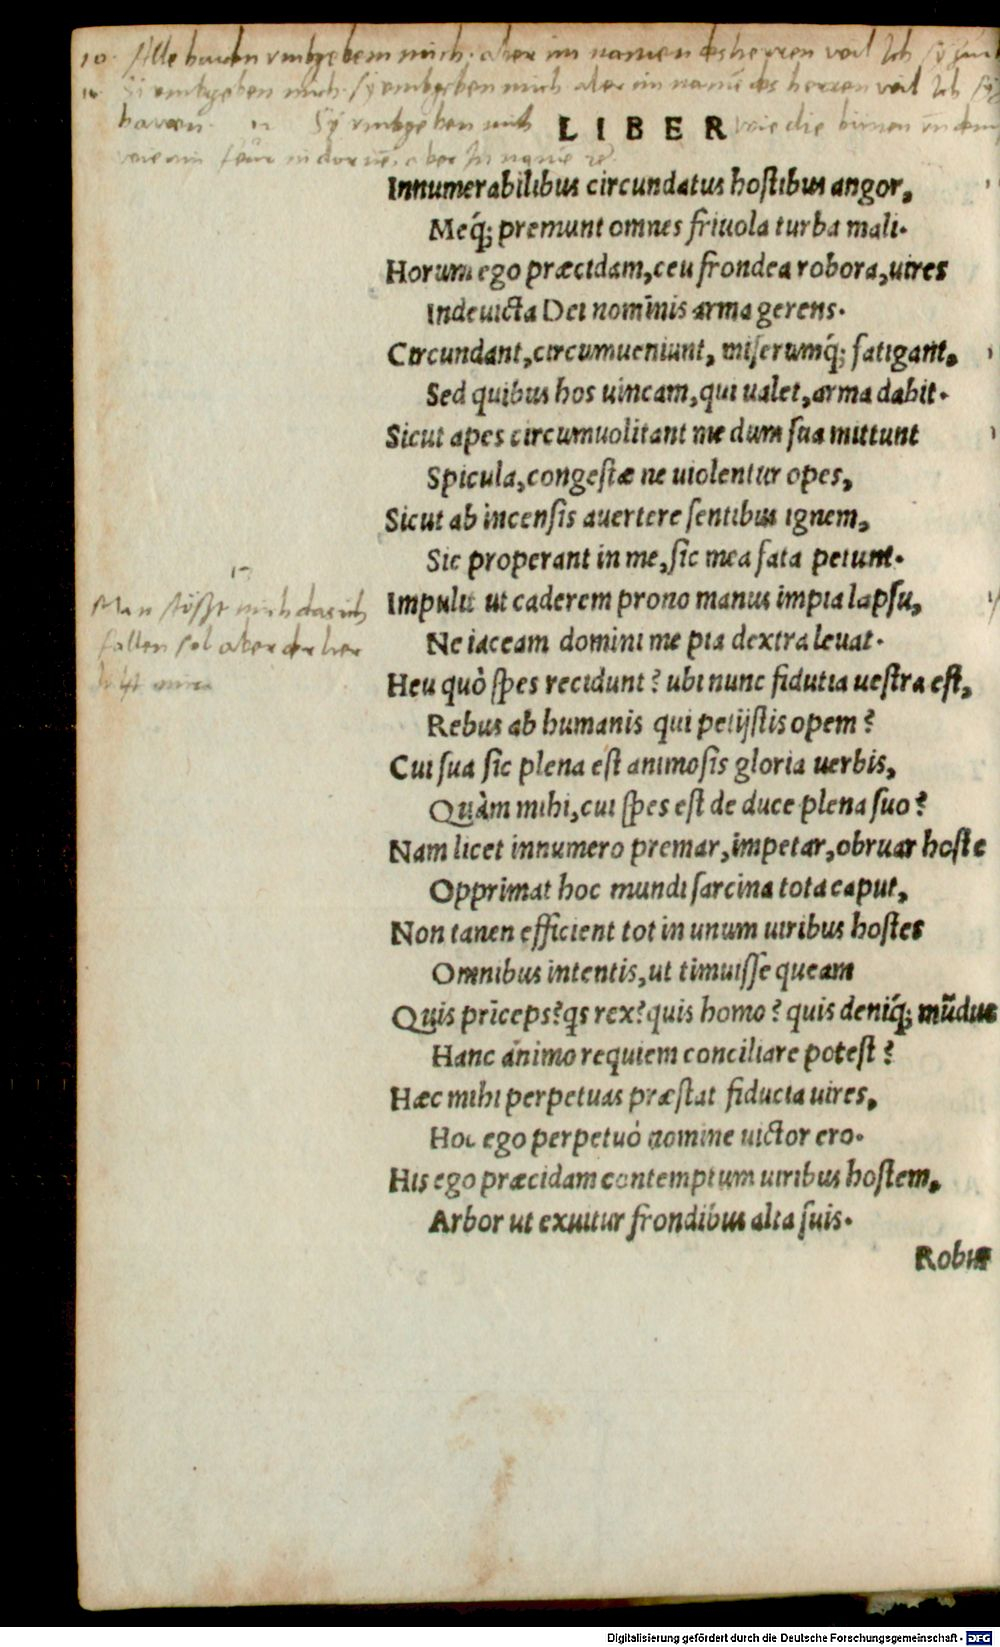 10. Alle haiden umbgeben mich. aber im namen des herren wil Ich sy
11. Si umbgeben mich. sy umbgeben mich aber im namē des herren wil Ich sy
hawen. 12 Sy umbgeben mich wie die binen
LIBER
wie ein feür in dornē. aber In name
Innumerabilibus circundatus hostibus angor,
Meq́; premunt omnes friuola turba mali.
Horum ego præcidam, ceu frondea robora, uires
Indeuicta Dei nominis arma gerens.
Circundant, circumueniunt, miserumq́; fatigant,
Sed quibus hos uincam, qui ualet, arma dabit.
Sicut apes circumuolitant me dum sua mittunt
Spicula, congestæ ne uiolentur opes,
Sicut ab incensis auertere sentibus ignem,
Sic properant in me, sic mea fata petunt.
13
Man stösst mich das ich
fallen sol aber der her
hilft mir
Impulit ut caderem prono manus impia lapsu,
Ne iaceam domini me pia dextra leuat.
Heu quò spes recidunt? ubi nunc fidutia uestra est,
Rebus ab humanis qui petijstis opem?
Cui sua sic plena est animosis gloria uerbis,
Quàm mihi, cui spes est de duce plena suo?
Nam licet innumero premar, impetar, obruar hoste
Opprimat hoc mundi sarcina tota caput,
Non tanen efficient tot in unum uiribus hostes
Omnibus intentis, ut timuisse queam
Quis prīceps? qs rex? quis homo? quis deniq́; mūdus
Hanc animo requiem conciliare potest?
Hæc mihi perpetuas præstat fiducia uires,
Hoc ego perpetuò nomine uictor ero.
His ego præcidam contemptum uiribus hostem,
Arbor ut exuitur frondibus alta suis.
Robur
Digitalisierung gefördert durch die Deutsche Forschungsgemeinschaft - DFG